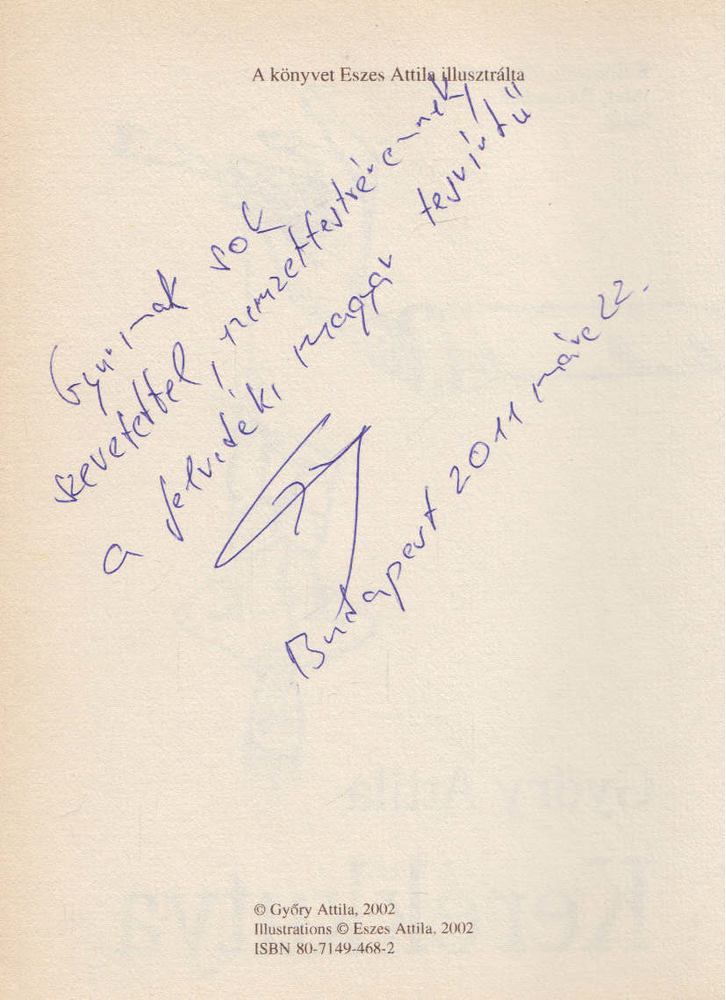 A könyvet Eszes Attila illusztrálta
Gyurinak sok
szeretettel, nemzettestvéremnek
a felvidéki magyar
Budapest 2011 márc 22.
© Győry Attila, 2002
Illustrations © Eszes Attila, 2002
ISBN 80-7149-468-2